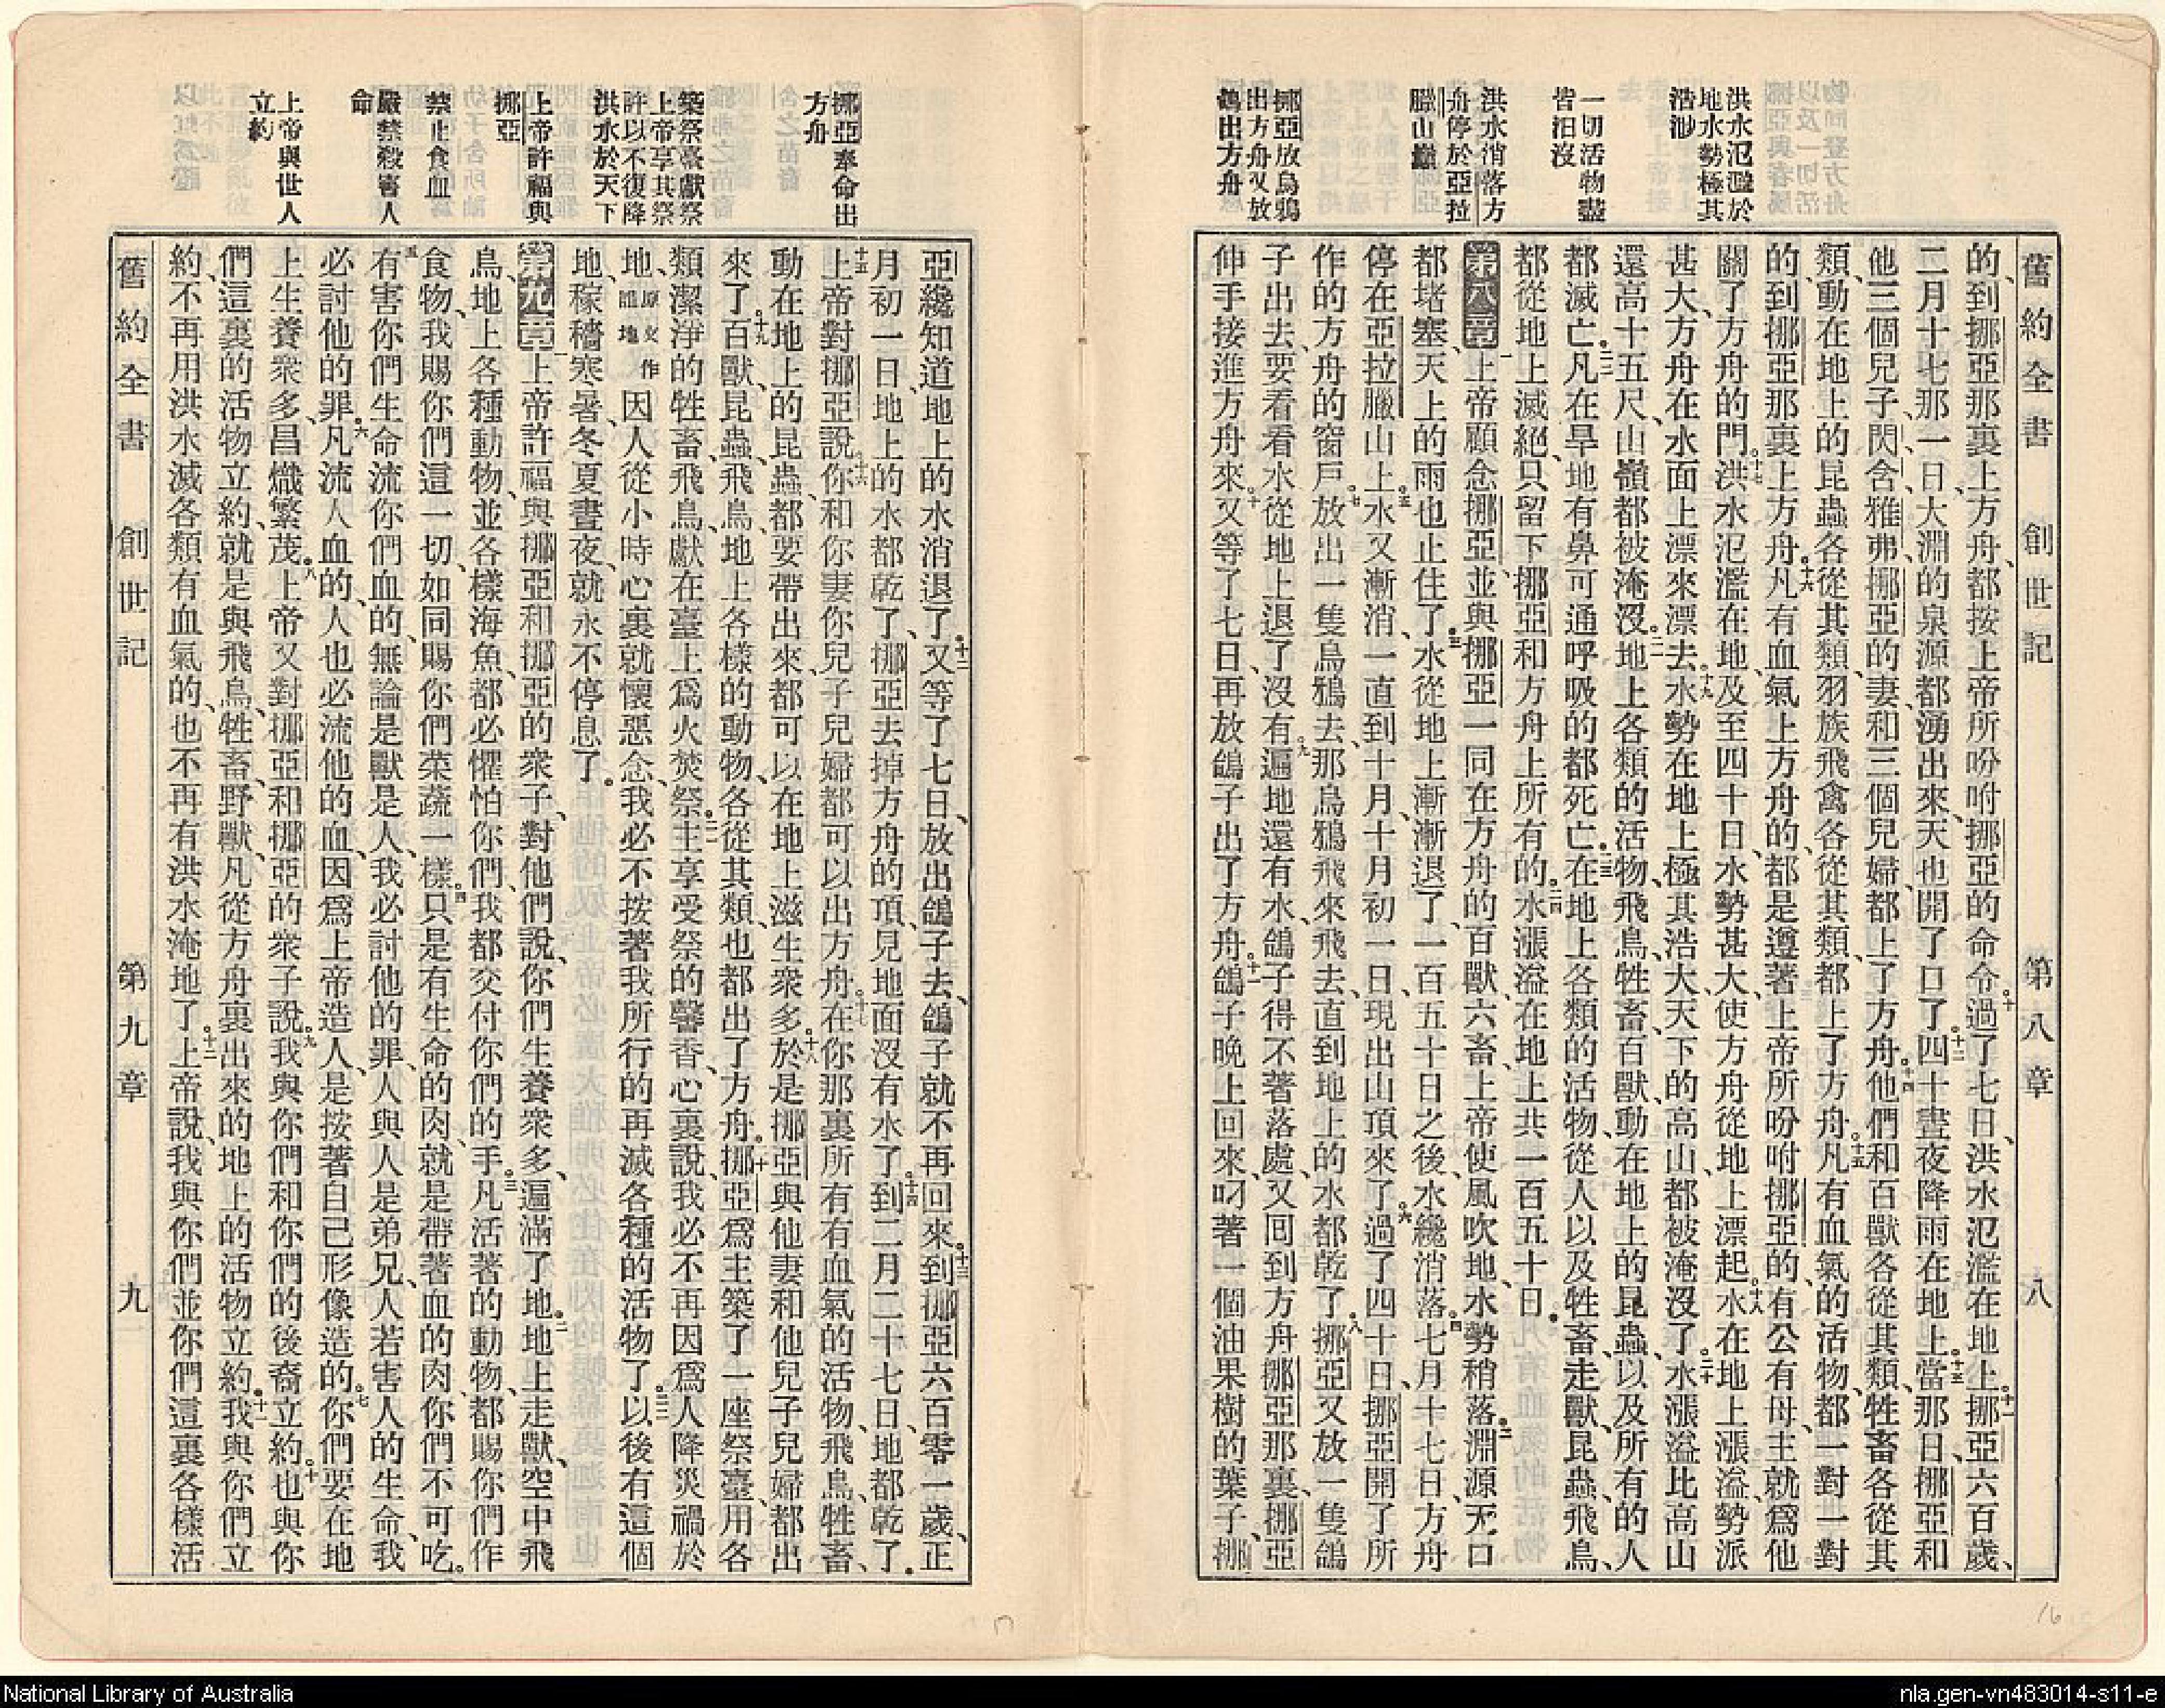 舊約全書 創世記 第八章 八
洪水氾濫於
地水勢極其
浩渺
一切活物盡
皆汨沒
洪水消落方
舟停於亞拉
臘山巔
挪亞放烏鴉
出方舟又放
鴿出方舟
的、到挪亞那裏上方舟、都按上帝所吩咐挪亞的命令。十過了七日、洪水氾濫在地上。十一挪亞六百歲、
二月十七那一日、大淵的泉源都湧出來、天也開了口了。十二四十晝夜降雨在地上。十三當那日、挪亞和
他三個兒子閃含雅弗、挪亞的妻和三個兒婦都上了方舟。十四他們和百獸各從其類、牲畜各從其
類、動在地上的昆蟲各從其類、羽族飛禽各從其類、都上了方舟。十五凡有血氣的活物、都一對一對
的、到挪亞那裏上方舟。十六凡有血氣上方舟的、都是遵著上帝所吩咐挪亞的、有公有母、主就爲他
關了方舟的門。十七洪水氾濫在地、及至四十日、水勢甚大、使方舟從地上漂起。十八水在地上漲溢、勢派
甚大、方舟在水面上漂來漂去。十九水勢在地上極其浩大、天下的高山、都被淹沒了。二十水漲溢比高山
還高十五尺、山嶺都被淹沒。二一地上各類的活物、飛鳥、牲畜、百獸、動在地上的昆蟲、以及所有的人
都滅亡。二二凡在旱地有鼻可通呼吸的都死亡。二三在地上各類的活物、從人以及牲畜、走獸、昆蟲、飛鳥、
都從地上滅絕、只留下挪亞和方舟上所有的。二四水漲溢在地上共一百五十日。
第八章 一上帝顧念挪亞、並與挪亞一同在方舟的百獸六畜、上帝使風吹地、水勢稍落。二淵源天口
都堵塞、天上的雨也止住了。三水從地上漸漸退了、一百五十日之後、水纔消落。四七月十七日、方舟
停在亞拉臘山上。五水又漸消、一直到十月、十月初一日、現出山頂來了。六過了四十日、挪亞開了所
作的方舟的窗戶。七放出一隻烏鴉去、那烏鴉飛來飛去、直到地上的水都乾了。八挪亞又放一隻鴿
子出去、要看看水從地上退了沒有。九遍地還有水、鴿子得不著落處、又回到方舟挪亞那裏、挪亞
伸手接進方舟來。十又等了七日、再放鴿子出了方舟。十一鴿子晚上回來、叼著一個油果樹的葉子、挪
挪亞奉命出
方舟
築祭臺獻祭
上帝享其祭
許以不復降
洪水於天下
上帝許福與
挪亞
禁止食血
嚴禁殺害人
命
上帝與世人
立約
亞纔知道地上的水消退了。十二又等了七日、放出鴿子去、鴿子就不再回來。十三到挪亞六百零一歲、正
月初一日、地上的水都乾了、挪亞去掉方舟的頂、見地面沒有水了。十四到二月二十七日、地都乾了。
十五上帝對挪亞說。十六你和你妻你兒子兒婦都可以出方舟。十七在你那裏所有有血氣的活物、飛鳥、牲畜、
動在地上的昆蟲、都要帶出來、都可以在地上滋生衆多。十八於是挪亞與他妻和他兒子兒婦都出
來了。十九百獸、昆蟲、飛鳥、地上各樣的動物、各從其類、也都出了方舟。二十挪亞爲主築了一座祭臺、用各
類潔淨的牲畜、飛鳥、獻在臺上爲火焚祭。二一主享受祭的馨香、心裏說、我必不再因爲人降災禍於
地、原文作詛地 因人從小時心裏就懷惡念、我必不按著我所行的再滅各種的活物了。二二以後有這個
地、稼穡寒暑、冬夏晝夜、就永不停息了。
第九章 一上帝許福與挪亞和挪亞的衆子、對他們說、你們生養衆多、遍滿了地。二地上走獸、空中飛
鳥、地上各種動物、並各樣海魚、都必懼怕你們、我都交付你們的手。三凡活著的動物、都賜你們作
食物、我賜你們這一切、如同賜你們菜蔬一樣。四只是有生命的肉、就是帶著血的肉、你們不可吃。
五有害你們生命流你們血的、無論是獸是人、我必討他的罪、人與人是弟兄、人若害人的生命、我
必討他的罪。六凡流人血的、人也必流他的血、因爲上帝造人、是按著自己形像造的。七你們要在地
上生養衆多、昌熾繁茂。八上帝又對挪亞和挪亞的衆子說。九我與你們和你們的後裔立約。十也與你
們這裏的活物立約、就是與飛鳥、牲畜、野獸、凡從方舟裏出來的地上的活物立約。十一我與你們立
約、不再用洪水滅各類有血氣的、也不再有洪水淹地了。十二上帝說、我與你們並你們這裏各樣活
舊約全書 創世記 第九章 九
16
National Library of Australia
nla.gen-vn483014-s11-e